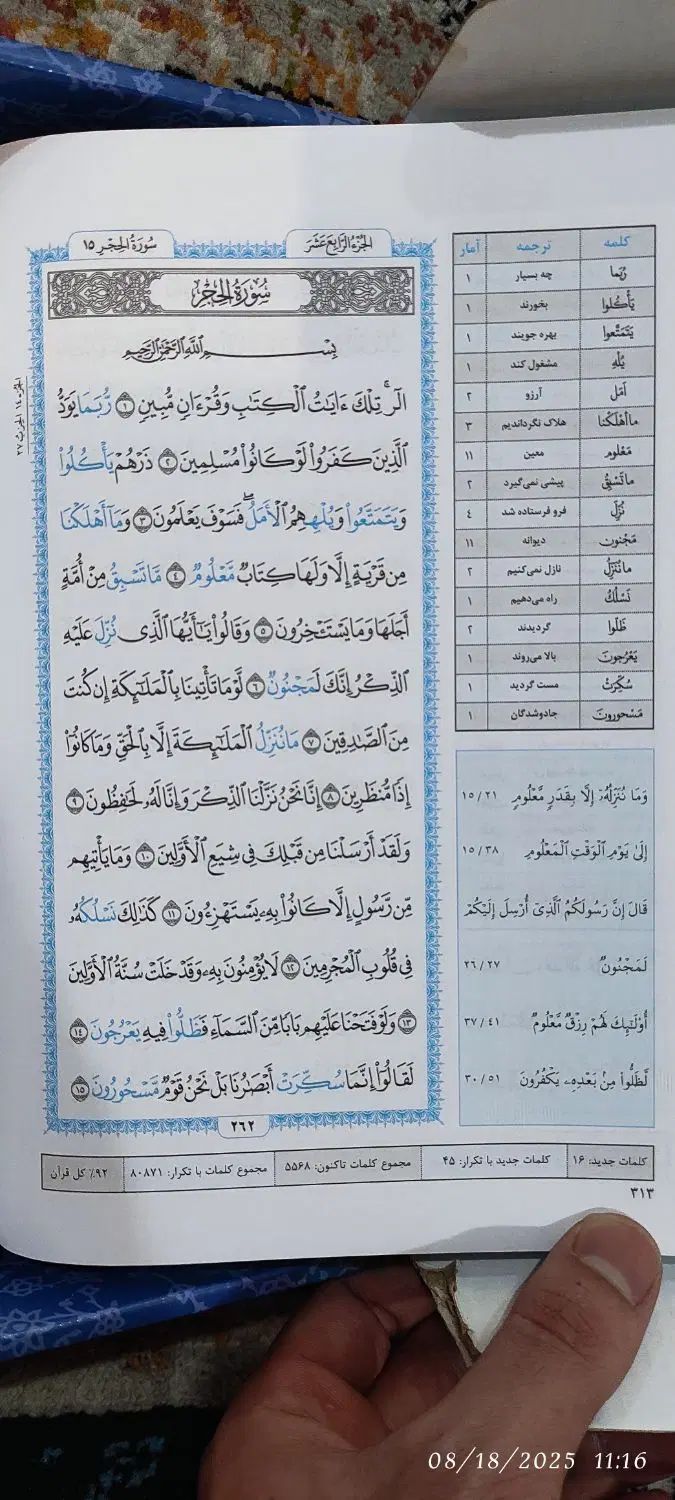 الجُزءُ الرَّابِعَ عَشَرَ
سُورَةُ الحِجرِ ١٥
سُورَةُ الحِجرِ
بِسْمِ اللَّهِ الرَّحْمَنِ الرَّحِيمِ
الٓر ۚ تِلْكَ ءَايَٰتُ ٱلْكِتَٰبِ وَقُرْءَانٍ مُّبِينٍ ١ رُّبَمَا يَوَدُّ
ٱلَّذِينَ كَفَرُوا۟ لَوْ كَانُوا۟ مُسْلِمِينَ ٢ ذَرْهُمْ يَأْكُلُوا۟
وَيَتَمَتَّعُوا۟ وَيُلْهِهِمُ ٱلْأَمَلُ ۖ فَسَوْفَ يَعْلَمُونَ ٣ وَمَآ أَهْلَكْنَا
مِن قَرْيَةٍ إِلَّا وَلَهَا كِتَابٌ مَّعْلُومٌ ٤ مَّا تَسْبِقُ مِنْ أُمَّةٍ
أَجَلَهَا وَمَا يَسْتَـْٔخِرُونَ ٥ وَقَالُوا۟ يَـٰٓأَيُّهَا ٱلَّذِى نُزِّلَ عَلَيْهِ
ٱلذِّكْرُ إِنَّكَ لَمَجْنُونٌ ٦ لَّوْ مَا تَأْتِينَا بِٱلْمَلَـٰٓئِكَةِ إِن كُنتَ
مِنَ ٱلصَّـٰدِقِينَ ٧ مَا نُنَزِّلُ ٱلْمَلَـٰٓئِكَةَ إِلَّا بِٱلْحَقِّ وَمَا كَانُوٓا۟
إِذًا مُّنظَرِينَ ٨ إِنَّا نَحْنُ نَزَّلْنَا ٱلذِّكْرَ وَإِنَّا لَهُۥ لَحَـٰفِظُونَ ٩
وَلَقَدْ أَرْسَلْنَا مِن قَبْلِكَ فِى شِيَعِ ٱلْأَوَّلِينَ ١٠ وَمَا يَأْتِيهِم
مِّن رَّسُولٍ إِلَّا كَانُوا۟ بِهِۦ يَسْتَهْزِءُونَ ١١ كَذَٰلِكَ نَسْلُكُهُۥ
فِى قُلُوبِ ٱلْمُجْرِمِينَ ١٢ لَا يُؤْمِنُونَ بِهِۦ وَقَدْ خَلَتْ سُنَّةُ ٱلْأَوَّلِينَ
١٣ وَلَوْ فَتَحْنَا عَلَيْهِم بَابًا مِّنَ ٱلسَّمَآءِ فَظَلُّوا۟ فِيهِ يَعْرُجُونَ ١٤
لَقَالُوٓا۟ إِنَّمَا سُكِّرَتْ أَبْصَـٰرُنَا بَلْ نَحْنُ قَوْمٌ مَّسْحُورُونَ ١٥
٢٦٢
الجزء ١٤ الحزب ٢٧
کلمه ترجمه آمار
رُبَما چه بسیار ۱
یَأْکُلوا بخورند ۱
یَتَمَتَّعوا بهره جویند ۱
یُلْهِ مشغول کند ۱
أَمَل آرزو ۲
ما أَهْلَکْنا هلاک نگرداندیم ۳
مَعْلوم معین ۱۱
ما تَسْبِقُ پیشی نمی‌گیرد ۲
نُزِّلَ فرو فرستاده شد ۴
مَجْنون دیوانه ۱۱
ما نُنَزِّلُ نازل نمی‌کنیم ۲
نَسْلُكُ راه می‌دهیم ۱
ظَلّوا گردیدند ۲
یَعْرُجونَ بالا می‌روند ۱
سُکِّرَتْ مست گردید ۱
مَسْحورونَ جادوشدگان ۱
وَمَا نُنَزِّلُهُۥٓ إِلَّا بِقَدَرٍ مَّعْلُومٍ ۱۵/۲۱
إِلَىٰ يَوْمِ ٱلْوَقْتِ ٱلْمَعْلُومِ ۱۵/۳۸
قَالَ إِنَّ رَسُولَكُمُ ٱلَّذِىٓ أُرْسِلَ إِلَيْكُمْ
لَمَجْنُونٌ ۲۶/۲۷
أُو۟لَـٰٓئِكَ لَهُمْ رِزْقٌ مَّعْلُومٌ ۳۷/۴۱
لَّظَلُّوا۟ مِنۢ بَعْدِهِۦ يَكْفُرُونَ ۳۰/۵۱
کلمات جدید: ۱۶ کلمات جدید با تکرار: ۴۵ مجموع کلمات تاکنون: ۵۵۶۸ مجموع کلمات با تکرار: ۸۰۸۷۱ ۹۲٪ کل قرآن
۳۱۳
08/18/2025 11:16